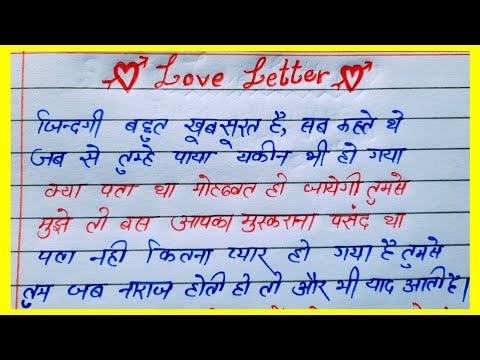 Love Letter
जिन्दगी बहुत खूबसूरत है, सब कहते थे
जब से तुम्हे पाया यकीन भी हो गया
क्या पता था मोहब्बत हो जायेगी तुमसे
मुझे तो बस आपका मुस्कराना पसंद था
पता नही कितना प्यार हो गया है तुमसे
तुम जब नाराज होती हो तो और भी याद आती है।